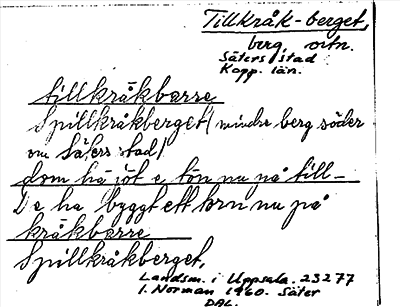 Tillkråk-berget,
berg, ortn.
Säters stad
Kopp. län.
tillkråkbärre
Spillkråkberget (mindre berg söder
om Säters stad)
dom há jöt e tön nu på till-
De ha byggt ett torn nu på
kråkbärre
Spillkråkberget.
Landsm. i Uppsala. 23277
I. Norman 1960. Säter
DAL.